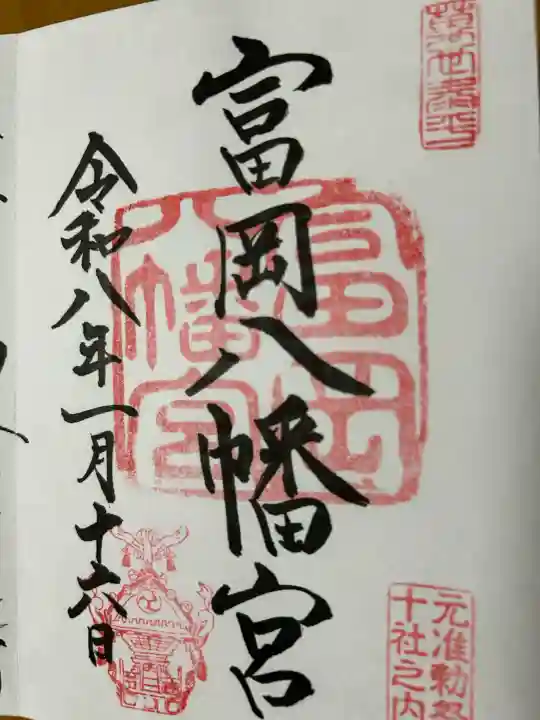 富岡八幡宮
令和八年一月十六日
富岡
八幡宮
元准勅祭
十社之内